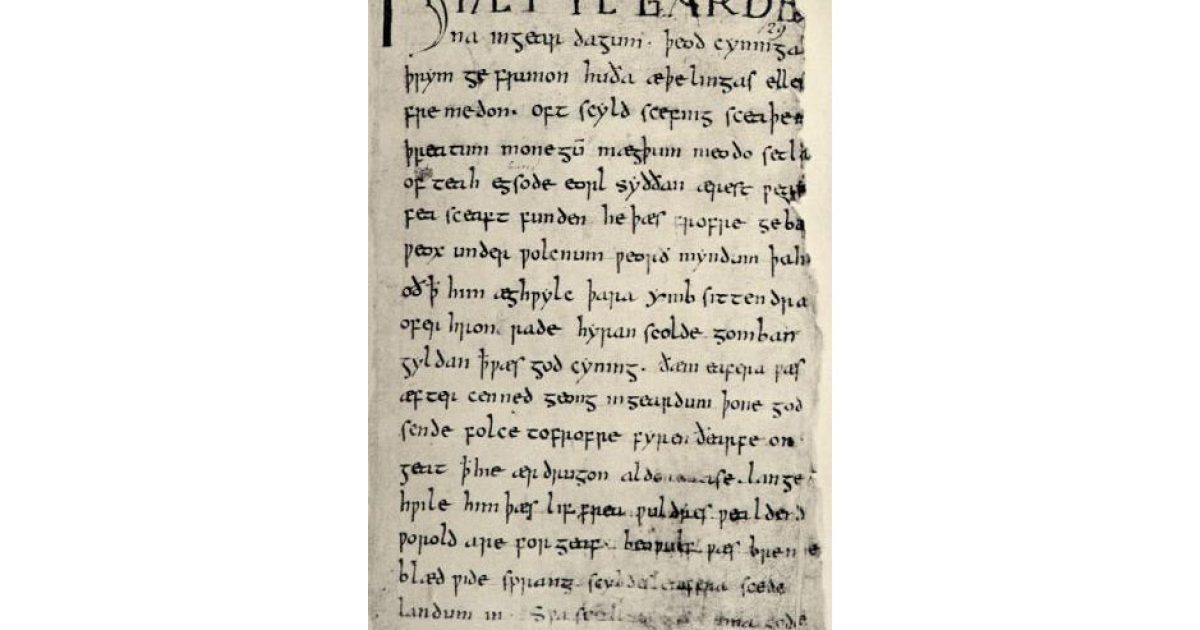 HǷÆT ǷE GARDE
129
na ingear dagum. þeod cyninga
þrym ge frunon huða æþelingas elle
fre medon. oft scyld scefing sceaþe
þreatum monegū mægþum meodo setla
of teah egsode eorl syððan ærest ƿear
fea sceaft funden he þæs frofre geba
ƿeox under ƿolcnum ƿeorð myndum þah
oð þ̄ him æghƿylc þara ymb sittendra
ofer hron rade hyran scolde gomban
gyldan þ̄ ƿæs god cyning. ðæm eafera ƿæs
æfter cenned geong ingeardum þone god
sende folce tofrofre fyren ðearfe on
geat þ̄ hie ær drugon aldor ase. lange
hƿile him þæs lif frea ƿuldres ƿealdend
ƿorold are for geaf. beoƿulf ƿæs breme
blæd ƿide sprang scyldes eafera scede
landum in. Sƿa sceal uma gode